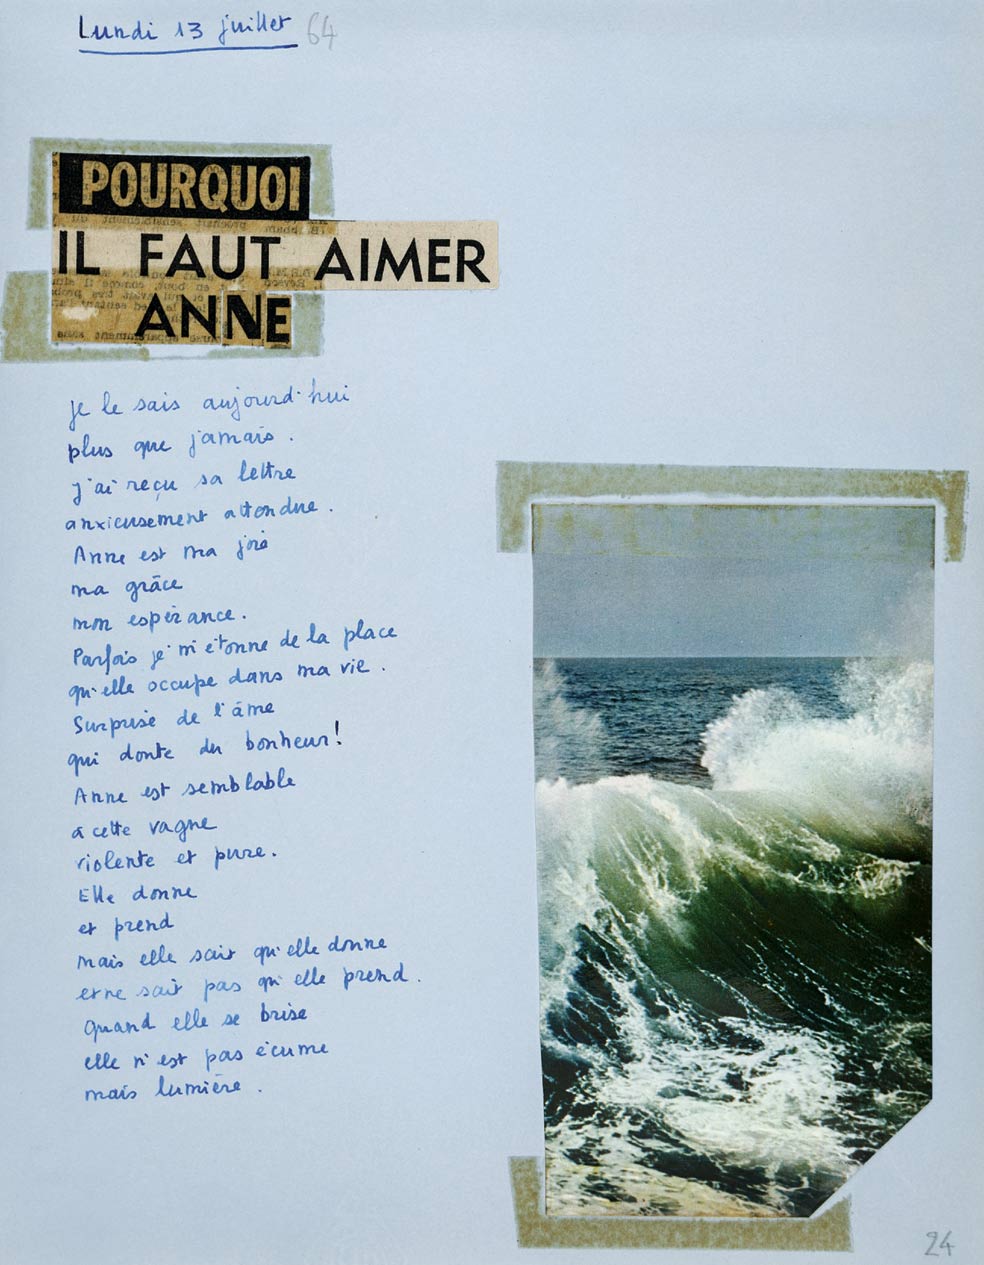 Lundi 13 juillet 64
POURQUOI
IL FAUT AIMER
ANNE
je le sais aujourd'hui
plus que jamais.
j'ai reçu sa lettre
anxieusement attendue.
Anne est ma joie
ma grâce
mon espérance.
Parfois je m'étonne de la place
qu'elle occupe dans ma vie.
Surprise de l'âme
qui doute du bonheur!
Anne est semblable
à cette vague
violente et pure.
Elle donne
et prend
mais elle sait qu'elle donne
et ne sait pas qu'elle prend.
Quand elle se brise
elle n'est pas écume
mais lumière.
24